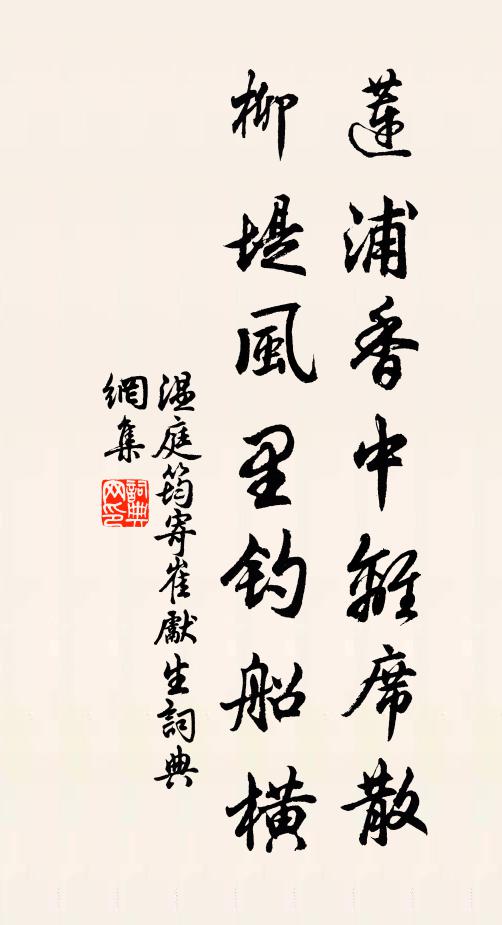 蓮浦香中離席散
柳堤風里釣船橫
温庭筠寄崔獻生詞典
網集
詞典
网印